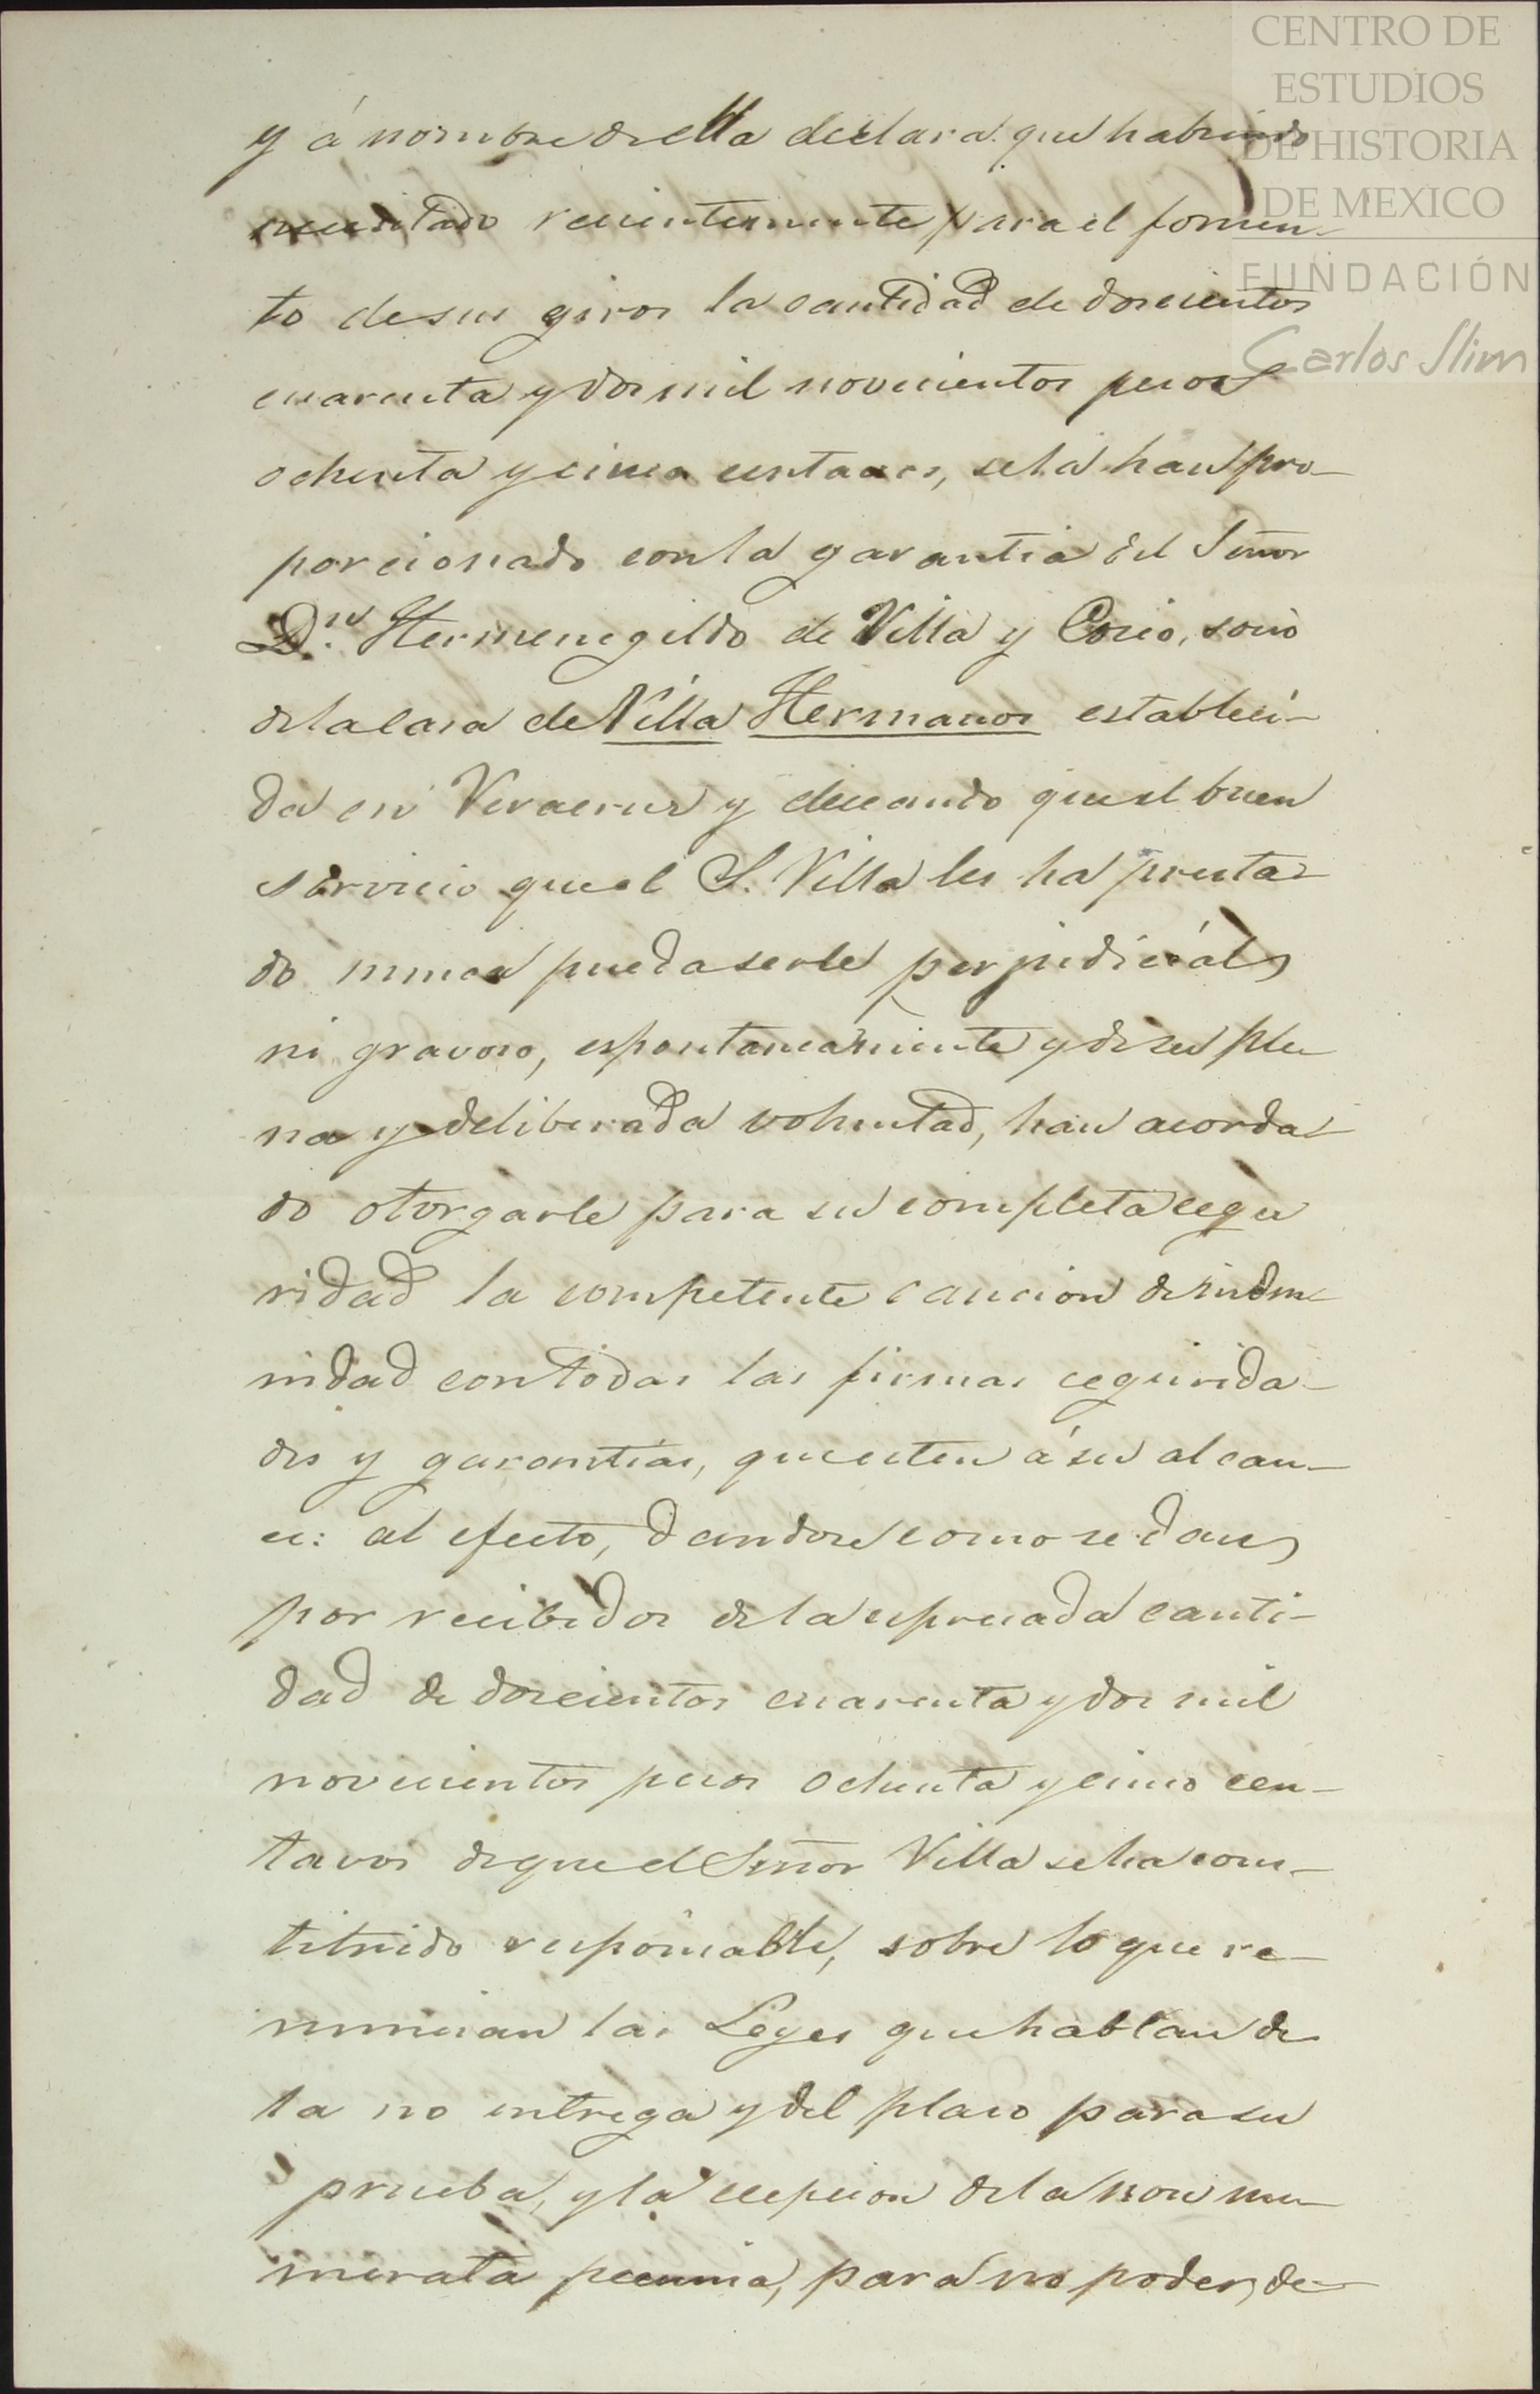 CENTRO DE
ESTUDIOS
DE HISTORIA
DE MEXICO
FUNDACIÓN
Carlos Slim
y á nombre de ella declara: que habiendo
necesitado recientemente para el fomen-
to de sus giros la cantidad de doscientos
cuarenta y dos mil novecientos pesos
ochenta y cinco centavos, se la han pro-
porcionado con la garantia del Señor
D.n Hermenegildo de Villa y Cosio, socio
de la casa de Villa Hermanos estableci-
da en Veracruz y deceando que el buen
servicio que el S. Villa les ha presta-
do nunca pueda serle perjudiciál
ni gravoso, espontaneamente y de su ple
na y deliberada voluntad, han acorda-
do otorgarle para su completa cegu
ridad la competente caucion de indem
nidad con todas las firmas cegurida-
des y garantias, que esten á su alcan-
ce: al efecto, dandose como se dan
por recibidos de la espresada canti-
dad de doscientos cuarenta y dos mil
novecientos pesos ochenta y cinco cen-
tavos de que el Señor Villa se ha cons-
tituido responsable, sobre lo que re-
nuncian las Leyes que hablan de
la no entrega y del plaso para su
prueba, y la ecepcion de la non nu-
merata pecunia, para no poder, de-